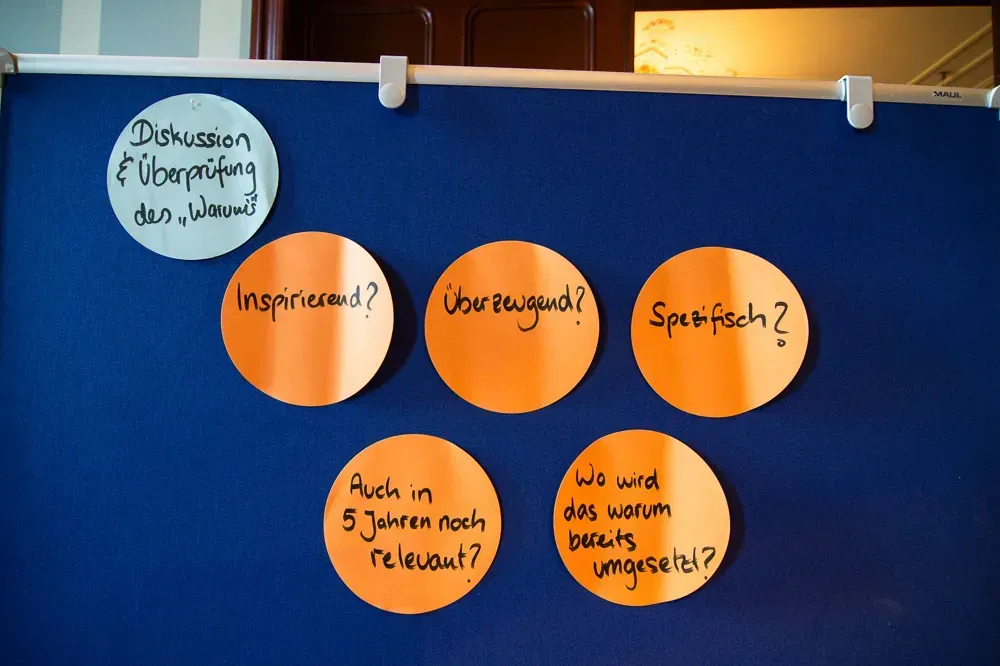 MAUL
Diskussion
& Überprüfung
des „Warums“
Inspirierend?
Überzeugend?
Spezifisch?
Auch in
5 Jahren noch
relevant?
Wo wird
das warum
bereits
umgesetzt?